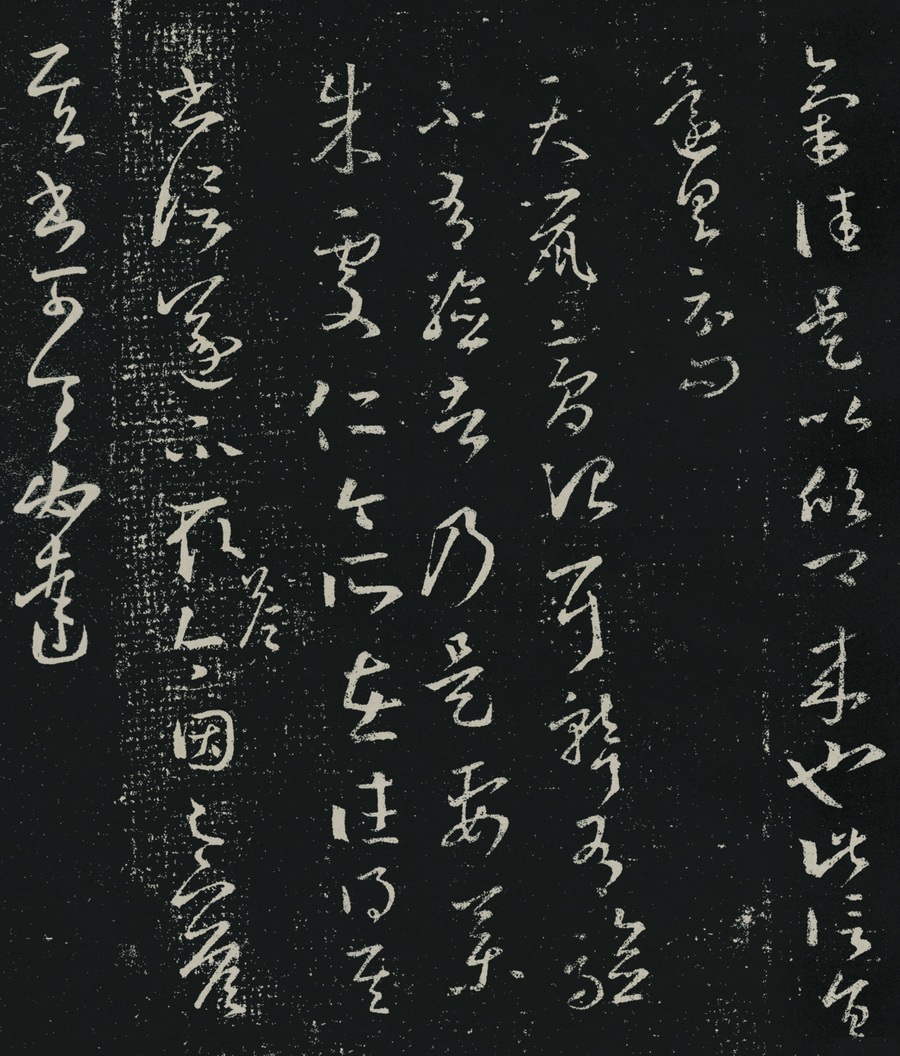 氣佳是以欣卿來也此信旨
還具示問
天鼠膏治耳聾有驗
不有驗者乃是要藥
朱處仁今所在往得其
書信遂不取答今因足下答
其書可令必達